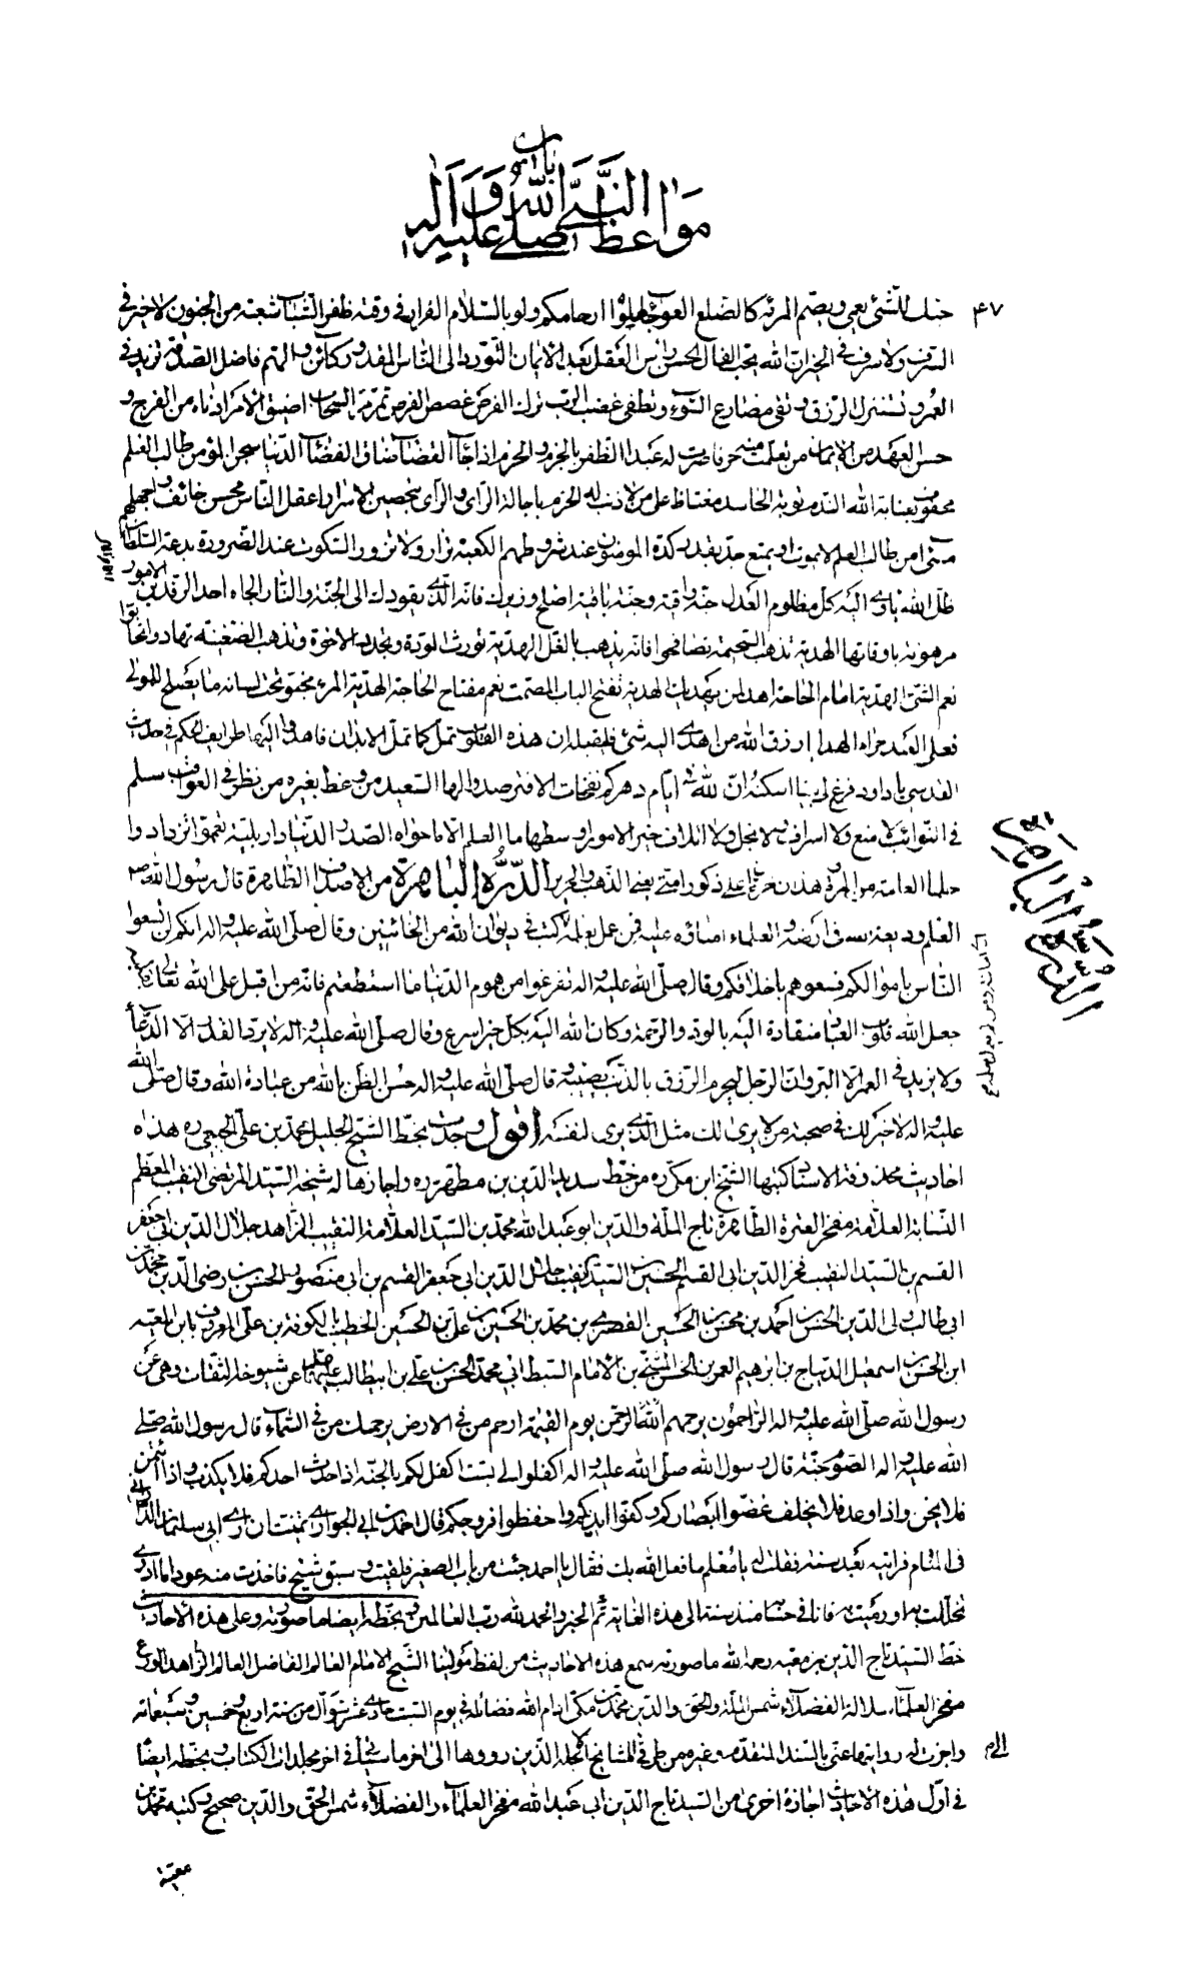 باب
مواعظ النبي صلى الله عليه وآله
٤٧
حبك للشئ يعمي ويصم المرئة كالضلع العوجاء بلوا ارحامكم ولو بالسلام الفرار في وقته ظفر الشباب شعبة من الجنون لا خير في
السرف ولا سرف في الخير ان الله يحب الفال الحسن راس العقل بعد الايمان التودد الى الناس المقدور كائن والهم فاضل الصدقة تزيد في
العمر و تستنزل الرزق وتقي مصارع السوء وتطفي غضب الرب ترك الفرص غصص الفرص تمر مر السحاب اضيق الامر ادناه من الفرج و
حسن العهد من الايمان من تعلمت منه حرفا صرت له عبدا الظفر بالجزم والحزم اذا جاء القضاء ضاق الفضاء الدنيا سجن المؤمن طالب العلم
محفوف بعناية الله الندم توبة الحاسد مغتاظ على من لا ذنب له الحزم باجالة الراى والراى بتحصين الاسرار اعقل الناس محسن خائف واجهلهم
مسئ امن طالب العلم لا يموت او يمتع جده بقدر كده المومنون عند شروطهم الكعبة تزار ولا تزور السكوت عند الضرورة بدعة السلطان
ظل الله ياوي اليه كل مظلوم العدل جنة واقية وجنة باقية اصلح وزيرك فانه الذي يقودك الى الجنة والنار الجاه احد الرفدين الامور
مرهونة باوقاتها الهدية تذهب السخيمة تصافحوا فانه يذهب بالغل الهدية تورث المودة وتجدد الاخوة وتذهب الضغينة تهادوا تحابوا
نعم الشئ الهدية امام الحاجة اهد لمن يهديك الهدية تفتح الباب المصمت نعم مفتاح الحاجة الهدية المرء مخبو تحت لسانه ما يصلح للمولى
فعلى العبد حرام الهدايا رزق الله من اهدي اليه شئ فليقبله ان هذه القلوب تمل كما تمل الابدان فاهدوا اليها طرايف الحكم في حديث
القدسي يا داود فرغ لي بيتا اسكنه ان لله في ايام دهركم نفحات الا فترصدوا لها السعيد من وعظ بغيره من نظر في العواقب سلم
في النوائب لا منع ولا اسراف ولا بخل ولا اتلاف خير الامور اوسطها ما العلم الا ما حواه الصدر الدنيا دار بلية
الدرة الباهرة من الاصداف الطاهرة قال رسول الله ص
العلم وديعة الله في ارضه والعلماء امناؤه عليه فمن عمل بعلمه ومن لم يعمل بعلمه كتب في ديوان الله من الخائنين وقال صلى الله عليه واله انكم لن تسعوا
الناس باموالكم فسعوهم باخلاقكم وقال صلى الله عليه واله تفرغوا من هموم الدنيا ما استطعتم فانه من اقبل على الله تعالى بقلبه
جعل الله قلوب العباد منقادة اليه بالود والرحمة وكان الله اليه بكل خير اسرع وقال صلى الله عليه واله لا يرد القدر الا الدعاء
ولا يزيد في العمر الا البر وان الرجل ليحرم الرزق بالذنب يصيبه وقال صلى الله عليه واله حسن الظن بالله من عبادة الله وقال صلى الله
عليه واله لا خير لك في صحبة من لا يرى لك مثل الذي يرى لنفسه اقول وجدت بخط الشيخ الجليل محمد بن علي الجبعي ره هذه
احاديث محذوفة الاسناد كتبها الشيخ ابن مكي ره من خط سديد الدين بن مطهر ره واجازها له شيخه السيد المرتضى النقيب المعظم
النسابة العلامة مفخر العترة الطاهرة تاج الملة والدين ابو عبد الله محمد بن السيد العلامة النقيب الزاهد جلال الدين ابي جعفر
القسم بن السيد النقيب فخر الدين ابي القسم الحسين بن السيد النقيب جلال الدين ابي جعفر القسم بن ابي منصور الحسن بن رضي الدين محمد بن
ابي طالب ولي الدين الحسن بن احمد بن محسن بن الحسين القصري بن محمد بن الحسين بن علي بن الحسين الخطيب بالكوفة بن علي المعروف بابن المعية
ابن الحسن بن اسمعيل الديباج بن ابرهيم الغمر بن الحسن المثنى بن الامام السبط ابي محمد الحسن بن علي بن ابيطالب عليهما السلام عن شيوخه الثقات وهي عن
رسول الله صلى الله عليه واله الراحمون يرحمهم الرحمن يوم القيمة ارحم من في الارض يرحمك من في السماء قال رسول الله صلى
الله عليه واله الصوم جنة قال رسول الله صلى الله عليه واله اكفلوا لي بست اكفل لكم بالجنة اذا حدث احدكم فلا يكذب واذا ائتمن
فلا يخن واذا وعد فلا يخلف غضوا ابصاركم وكفوا ايديكم واحفظوا فروجكم قال احمد بن ابي الجواري تمنيت ان ارى ابي سليمان الداراني
في المنام فرايته بعد سنة فقلت له يا معلم ما فعل الله بك فقال يا احمد جئت من باب الصغير فلقيت وسق شيح فاخذت منه عودا ما ادري
تخللت به او رميت به فانا في حسابه منذ سنة الى هذه الغاية تم الخبر والحمد لله رب العالمين وبخطه ايضا ما صورته وعلى هذه الاحاديث
خط السيد تاج الدين بن معية رحمه الله ما صورته سمع هذه الاحاديث من لفظ مولينا الشيخ الامام العالم الفاضل العالم الزاهد الورع
مفخر العلماء سلالة الفضلاء شمس الملة والحق والدين محمد بن مكي ادام الله فضائله في يوم السبت حادي عشر شوال من سنة اربع وخمسين وسبعمائة
واجزت له روايتها عني بالسند المتقدم وغيره من طرقي للمشايخ الاجلة الذين رووها الى اخر ما سياتي في اخر مجلدات الكتاب وبخطه ايضا
في اول هذه الاحاديث اجازة اخرى من السيد تاج الدين اب عبد الله مفخر العلماء والفضلاء شمس الحق والدين صحيح وكتبه محمد بن
معية
الدرة الباهرة